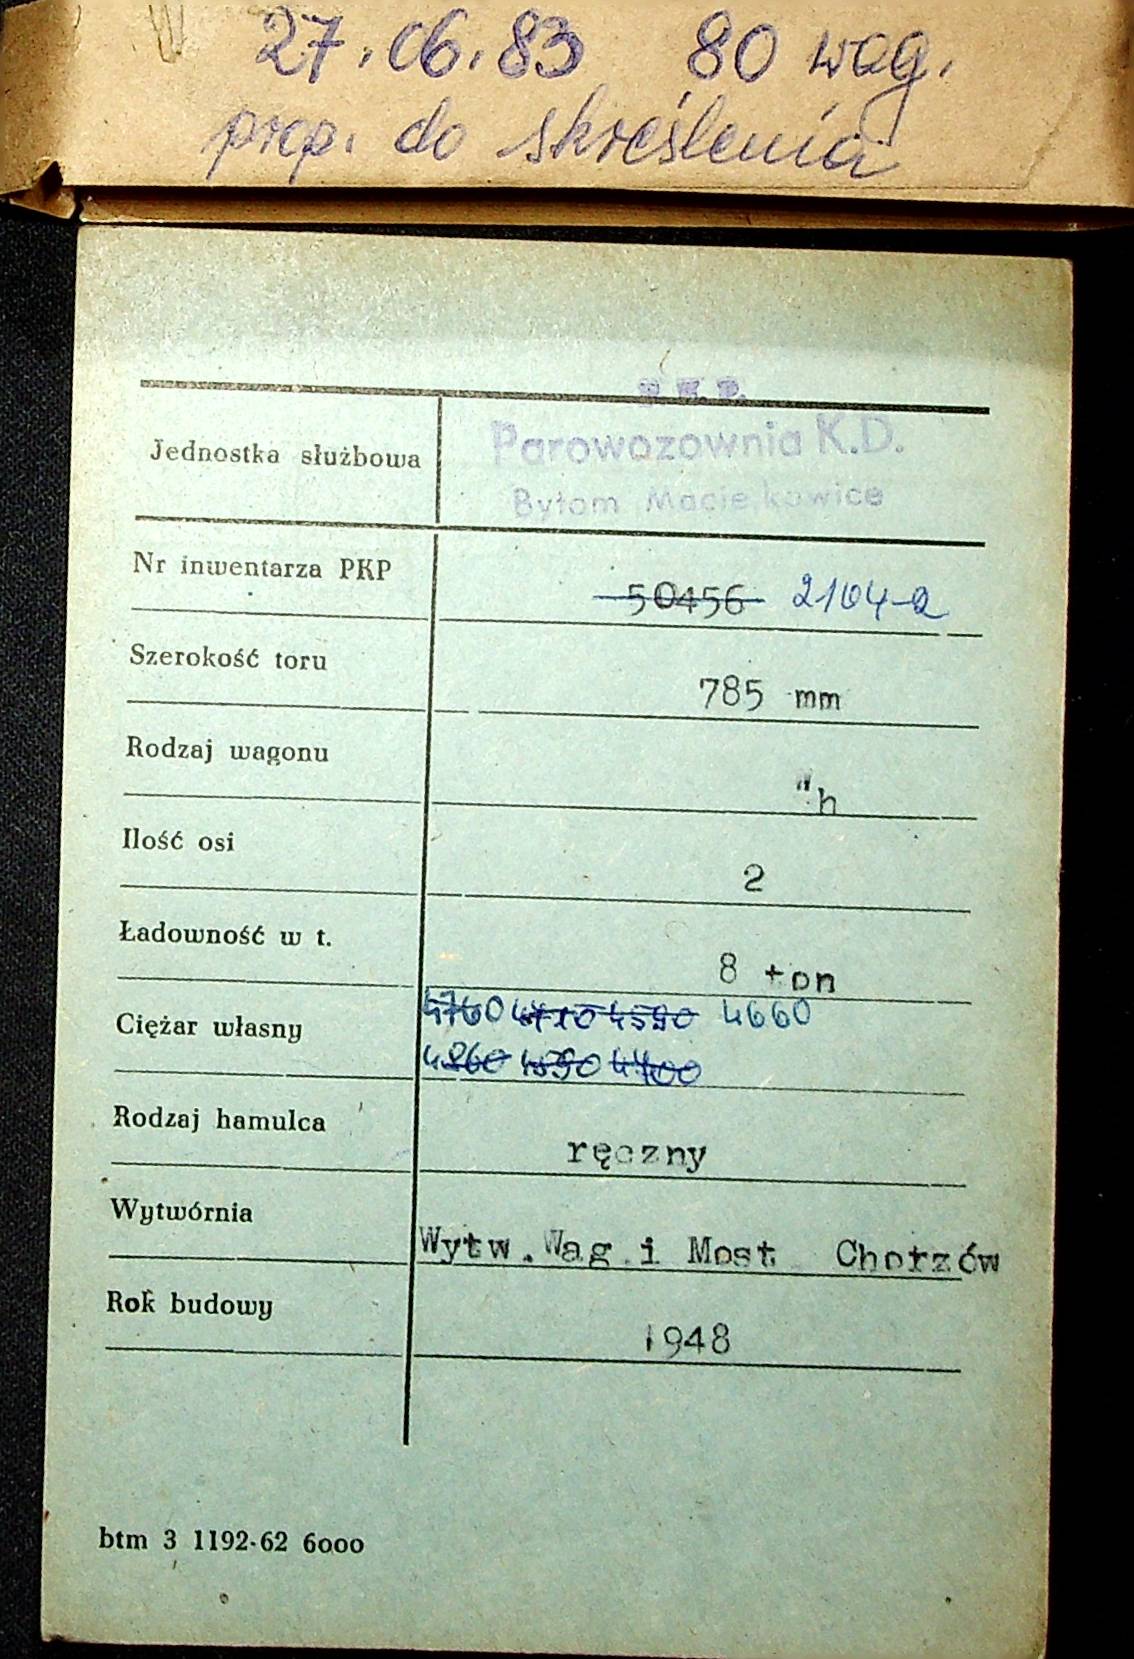 27.06.83 80 wag.
prop. do skreślenia
P.K.P.
Parowozownia K.D.
Jednostka służbowa
Bytom Maciejkowice
Nr inwentarza PKP
50456 2104-2
Szerokość toru
785 mm
Rodzaj wagonu
h
Ilość osi
2
Ładowność w t.
8 ton
4760 4710 4590 4660
Ciężar własny
4400
Rodzaj hamulca
ręczny
Wytwórnia
Wytw. Wag. i Most Chorzów
Rok budowy
1948
btm 3 1192-62 6000